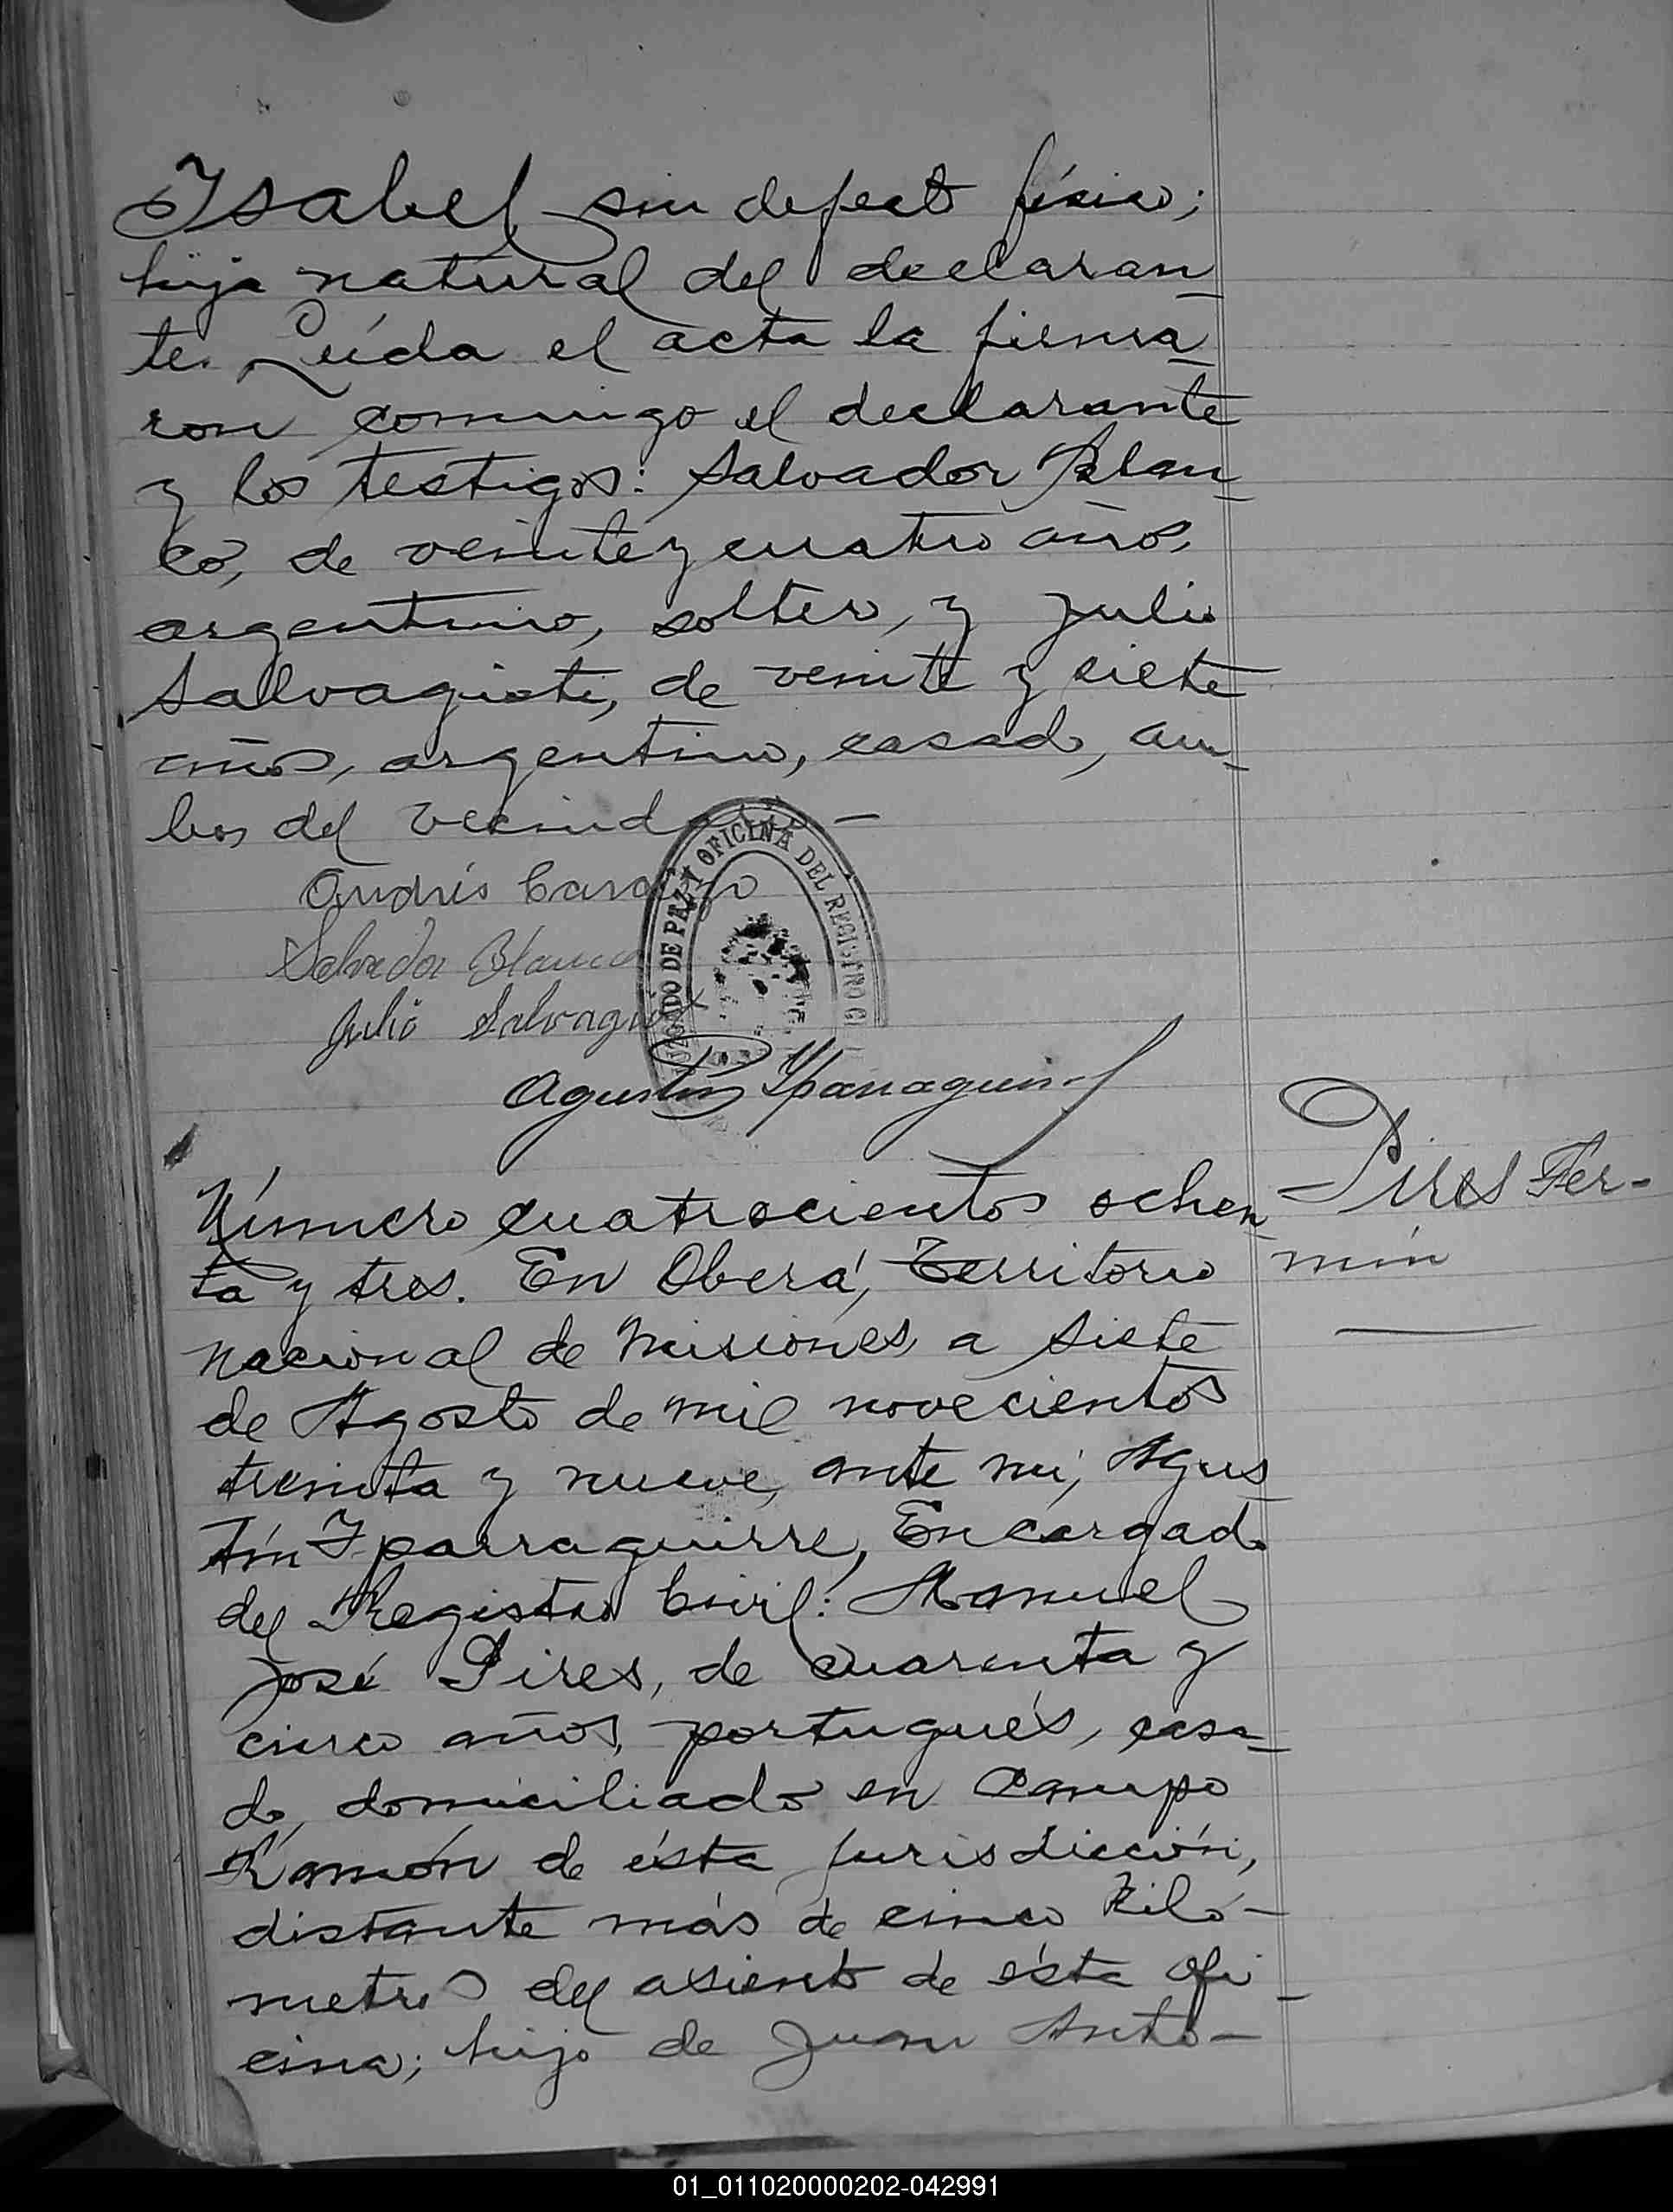 Isabel sin defecto físico;
hija natural del declaran
te. Leída el acta la firma
ron conmigo el declarante
y los testigos: Salvador Blan
co, de veinte y cuatro años,
argentino, soltero, y Julio
Salvagioti, de veinte y siete
años, argentino, casado, am
bos del
OFICINA DEL REGISTRO
JUZGADO DE PAZ Y
Andrés
Salvador Blanco
Julio
Agustin Yparraguirre
Número cuatrocientos ochen
Pires Fer-
ta y tres. En Oberá, Territorio
mín
nacional de Misiones, a siete
de Agosto de mil novecientos
treinta y nueve, ante mí, Agus
tín Yparraguirre, Encargado
del Registro Civil: Manuel
José Pires, de cuarenta y
cinco años, portugués, casa
do, domiciliado en Campo
Ramón de ésta jurisdicción,
distante más de cinco kiló-
metros del asiento de ésta ofi
cina; hijo de Juan Anto-
01_011020000202-042991